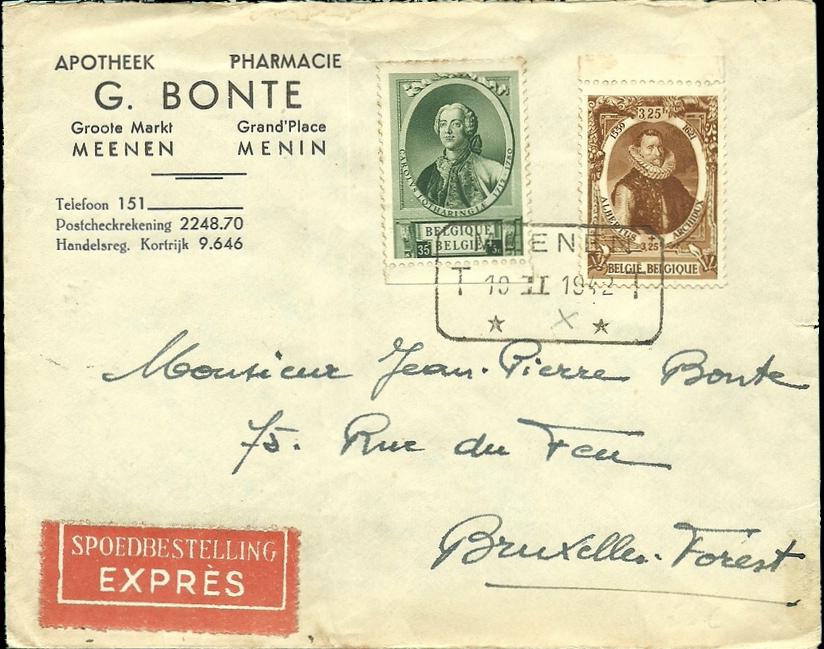 APOTHEEK PHARMACIE
G. BONTE
Groote Markt Grand'Place
MEENEN MENIN
Telefoon 151
Postcheckrekening 2248.70
Handelsreg. Kortrijk 9.646
CAROLVS LOTHARINGIÆ 1712-1780
BELGIQUE
35 BELGIË
3.25
ALBERTVS ARCHIDVX
3.25
BELGIË. BELGIQUE
MEENEN
T 19 II 1942 T
X
Monsieur Jean-Pierre Bonte
75. Rue du Feu
Bruxelles-Forest
SPOEDBESTELLING
EXPRÈS